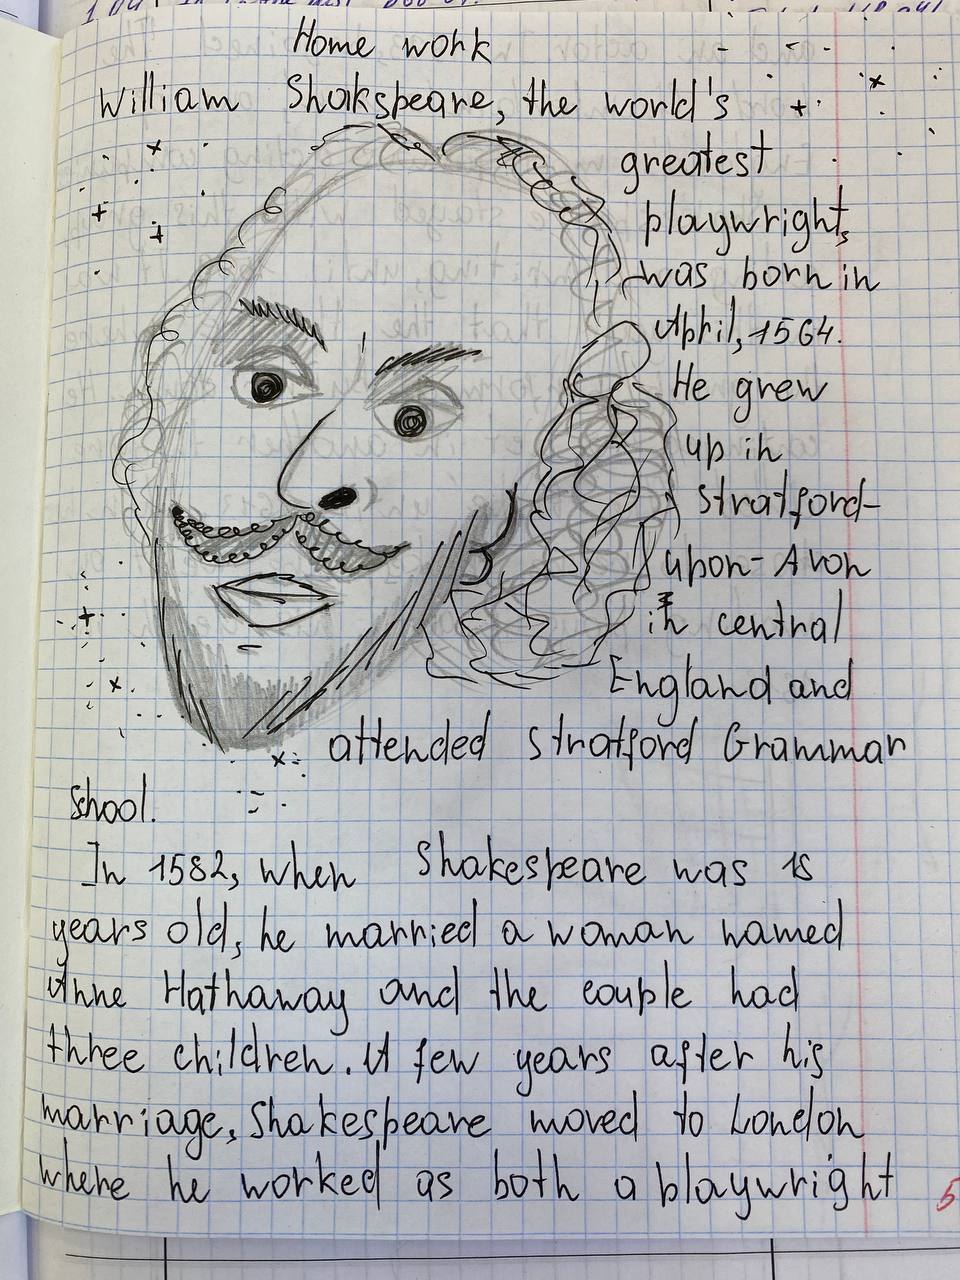 Home work
William Shakspeare, the world's
greatest
playwright,
was born in
April, 1564.
He grew
up in
Stratford-
upon-Avon
in central
England and
attended Stratford Grammar
School.
In 1582, when Shakespeare was 18
years old, he married a woman named
Anne Hathaway and the couple had
three children. A few years after his
marriage, Shakespeare moved to London
where he worked as both a playwright
5